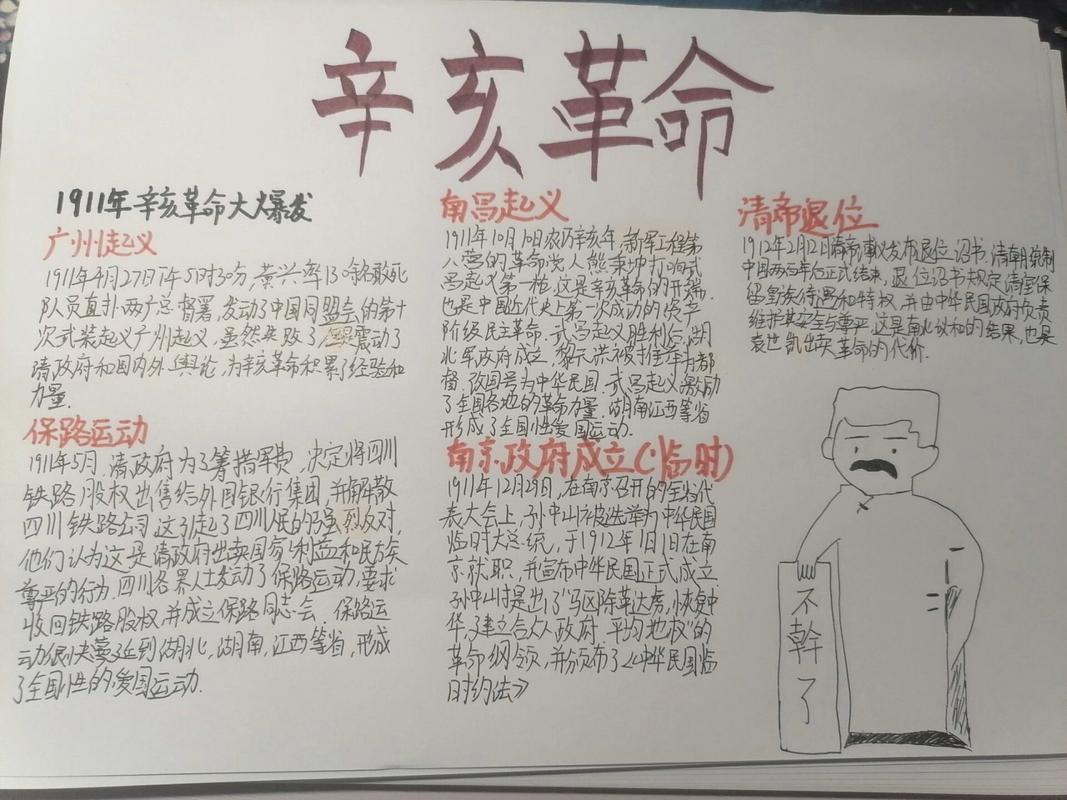 辛亥革命
1911年辛亥革命大爆发
广州起义
1911年4月27日下午5时30分,黄兴率130名敢死
队员直扑两广总督署,发动了中国同盟会的第十
次武装起义广州起义.虽然失败了但是震动了
清政府和国内外舆论,为辛亥革命积累了经验和
力量.
保路运动
1911年5月,清政府为了筹措军费,决定将四川
铁路股权出售给外国银行集团,并解散
四川铁路公司这引起了四川民的强烈反对.
他们认为这是清政府出卖国家利益和民族
尊严的行为.四川各界人士发动了保路运动,要求
收回铁路股权,并成立保路同志会.保路运
动很快蔓延到湖北,湖南,江西等省,形成
了全国性的爱国运动.
南昌起义
1911年10月10日农历辛亥年,新军工程第
八营的革命党人熊秉坤打响武
昌起义第一枪,这是辛亥革命的开端.
也是中国近代史上第一次成功的资产
阶级民主革命.武昌起义胜利后,湖
北军政府成立,黎元洪被推举为都
督.改国号为中华民国.武昌起义激励
了全国各地的革命力量.湖南江西等省
形成了全国性爱国运动.
南京政府成立(临时)
1911年12月29日,在南京召开的全省代
表大会上,孙中山被选举为中华民国
临时大总统,于1912年1月1日在南
京就职,并宣布中华民国正式成立.
孙中山时提出了"马区除革达虏,恢复中
华,建立合众政府.平均地权"的
革命纲领,并颁布了《中华民国临
时约法》
清帝退位
1912年2月12日清帝溥仪发布退位诏书.清朝统制
中国两百年后正式结束,退位诏书规定,清室保
留皇族待遇和特权,并由中华民国政府负责
维护其安全与尊严,这是南北议和的结果,也是
袁世凯出卖革命的代价.
不幹了